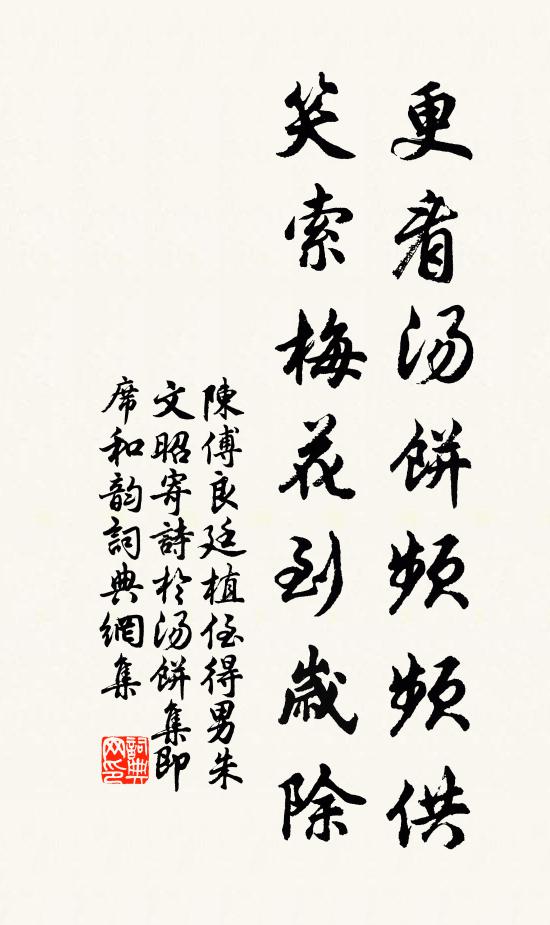 更看湯餅頻頻供
笑索梅花到歲除
陳傅良廷植侄得男朱
文昭寄詩於湯餅集即
席和韵詞典網集
詞典
网印